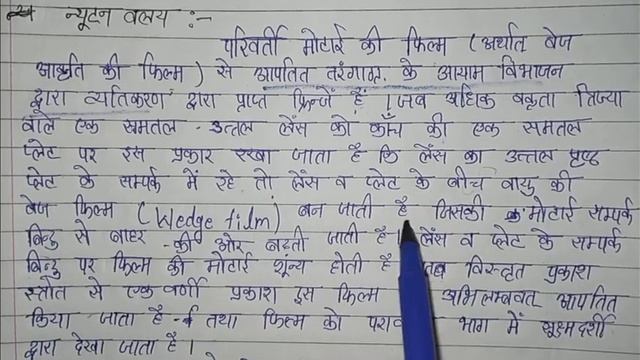 न्यूटन वलय :-
परिवर्ती मोटाई की फिल्म (अर्थात बेज
आकृति की फिल्म) से आपतित तरंगाग्र के आयाम विभाजन
द्वारा व्यतिकरण द्वारा प्राप्त फ्रिन्जें हैं। जब अधिक वक्रता त्रिज्या
वाले एक समतल - उत्तल लेंस को काँच की एक समतल
प्लेट पर इस प्रकार रखा जाता है कि लेंस का उत्तल पृष्ठ
प्लेट के सम्पर्क में रहे तो लेंस व प्लेट के बीच वायु की
बेज फिल्म (Wedge film) बन जाती है जिसकी मोटाई सम्पर्क
बिन्दु से बाहर की ओर बढ़ती जाती है। लेंस व प्लेट के सम्पर्क
बिन्दु पर फिल्म की मोटाई शून्य होती है विस्तृत प्रकाश
स्त्रोत से एकवर्णी प्रकाश इस फिल्म अभिलम्बवत आपतित
किया जाता है तथा फिल्म को भाग में सूक्ष्मदर्शी
द्वारा देखा जाता है।